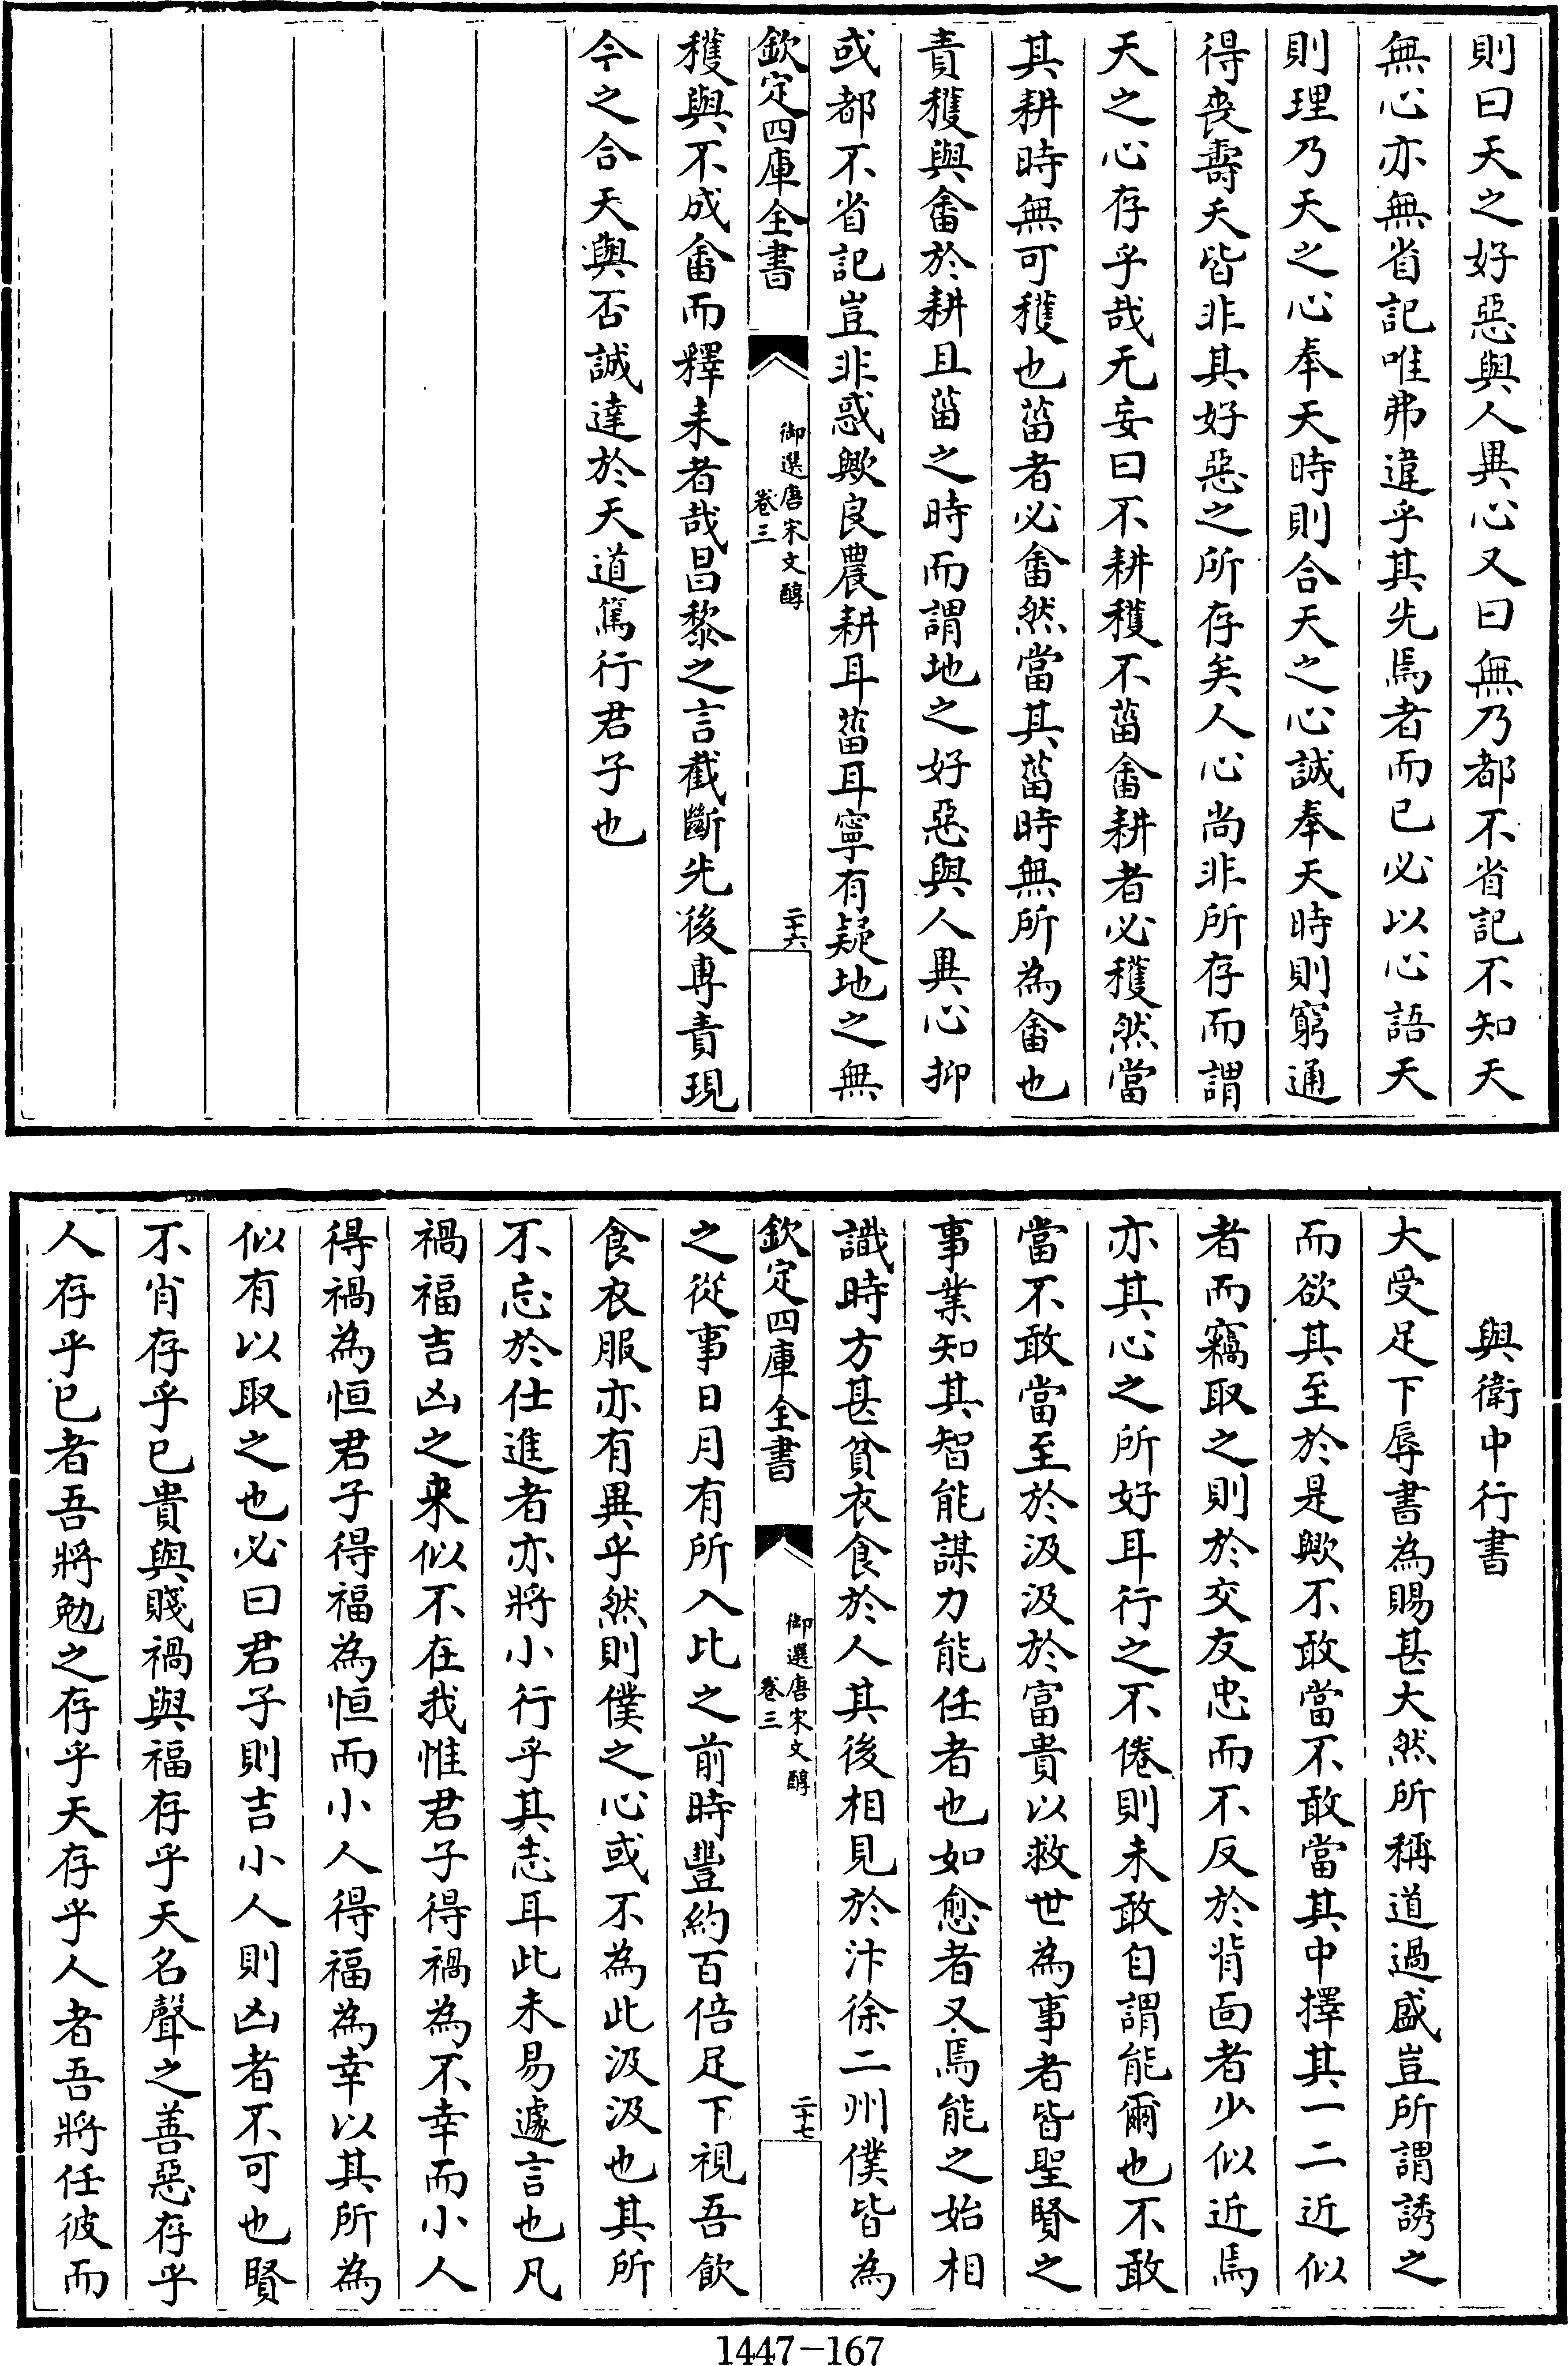 則曰天之好惡與人異心又曰無乃都不省記不知天
無心亦無省記唯弗違乎其先焉者而已必以心語天
則理乃天之心奉天時則合天之心誠奉天時則窮通
得喪壽夭皆非其好惡之所存矣人心尚非所存而謂
天之心存乎哉无妄曰不耕穫不菑畬耕者必穫然當
其耕時無可穫也菑者必畬然當其菑時無所為畬也
責穫與畬於耕且菑之時而謂地之好惡與人異心抑
或都不省記豈非惑歟良農耕耳菑耳寧有疑地之無
欽定四庫全書
御選唐宋文醇
卷三
二十六
穫與不成畬而釋耒者哉昌黎之言截斷先後專責現
今之合天與否誠達於天道篤行君子也
與衛中行書
大受足下辱書為賜甚大然所稱道過盛豈所謂誘之
而欲其至於是歟不敢當不敢當其中擇其一二近似
者而竊取之則於交友忠而不反於背面者少似近焉
亦其心之所好耳行之不倦則未敢自謂能爾也不敢
當不敢當至於汲汲於富貴以救世為事者皆聖賢之
事業知其智能謀力能任者也如愈者又焉能之始相
識時方甚貧衣食於人其後相見於汴徐二州僕皆為
欽定四庫全書
御選唐宋文醇
卷三
二十七
之從事日月有所入比之前時豐約百倍足下視吾飲
食衣服亦有異乎然則僕之心或不為此汲汲也其所
不忘於仕進者亦將小行乎其志耳此未易遽言也凡
禍福吉凶之來似不在我惟君子得禍為不幸而小人
得禍為恒君子得福為恒而小人得福為幸以其所為
似有以取之也必曰君子則吉小人則凶者不可也賢
不肖存乎已貴與賤禍與福存乎天名聲之善惡存乎
人存乎已者吾將勉之存乎天存乎人者吾將任彼而
1447-167